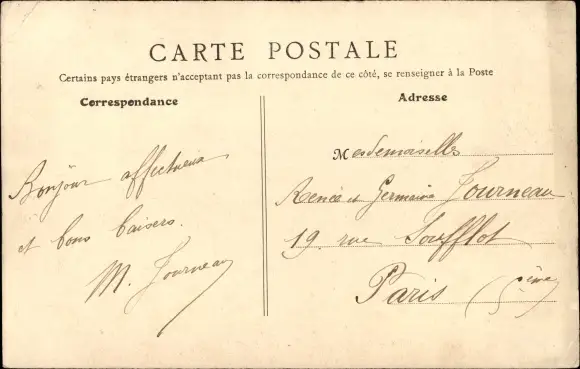 CARTE POSTALE
Certains pays étrangers n'acceptant pas la correspondance de ce côté, se renseigner à la Poste
Correspondance
Bonjour affectueux
et bons baisers.
M. Journeau
Adresse
Mesdemoiselles
Renée et Germaine Journeau
19 rue Soufflot
Paris (5ème)